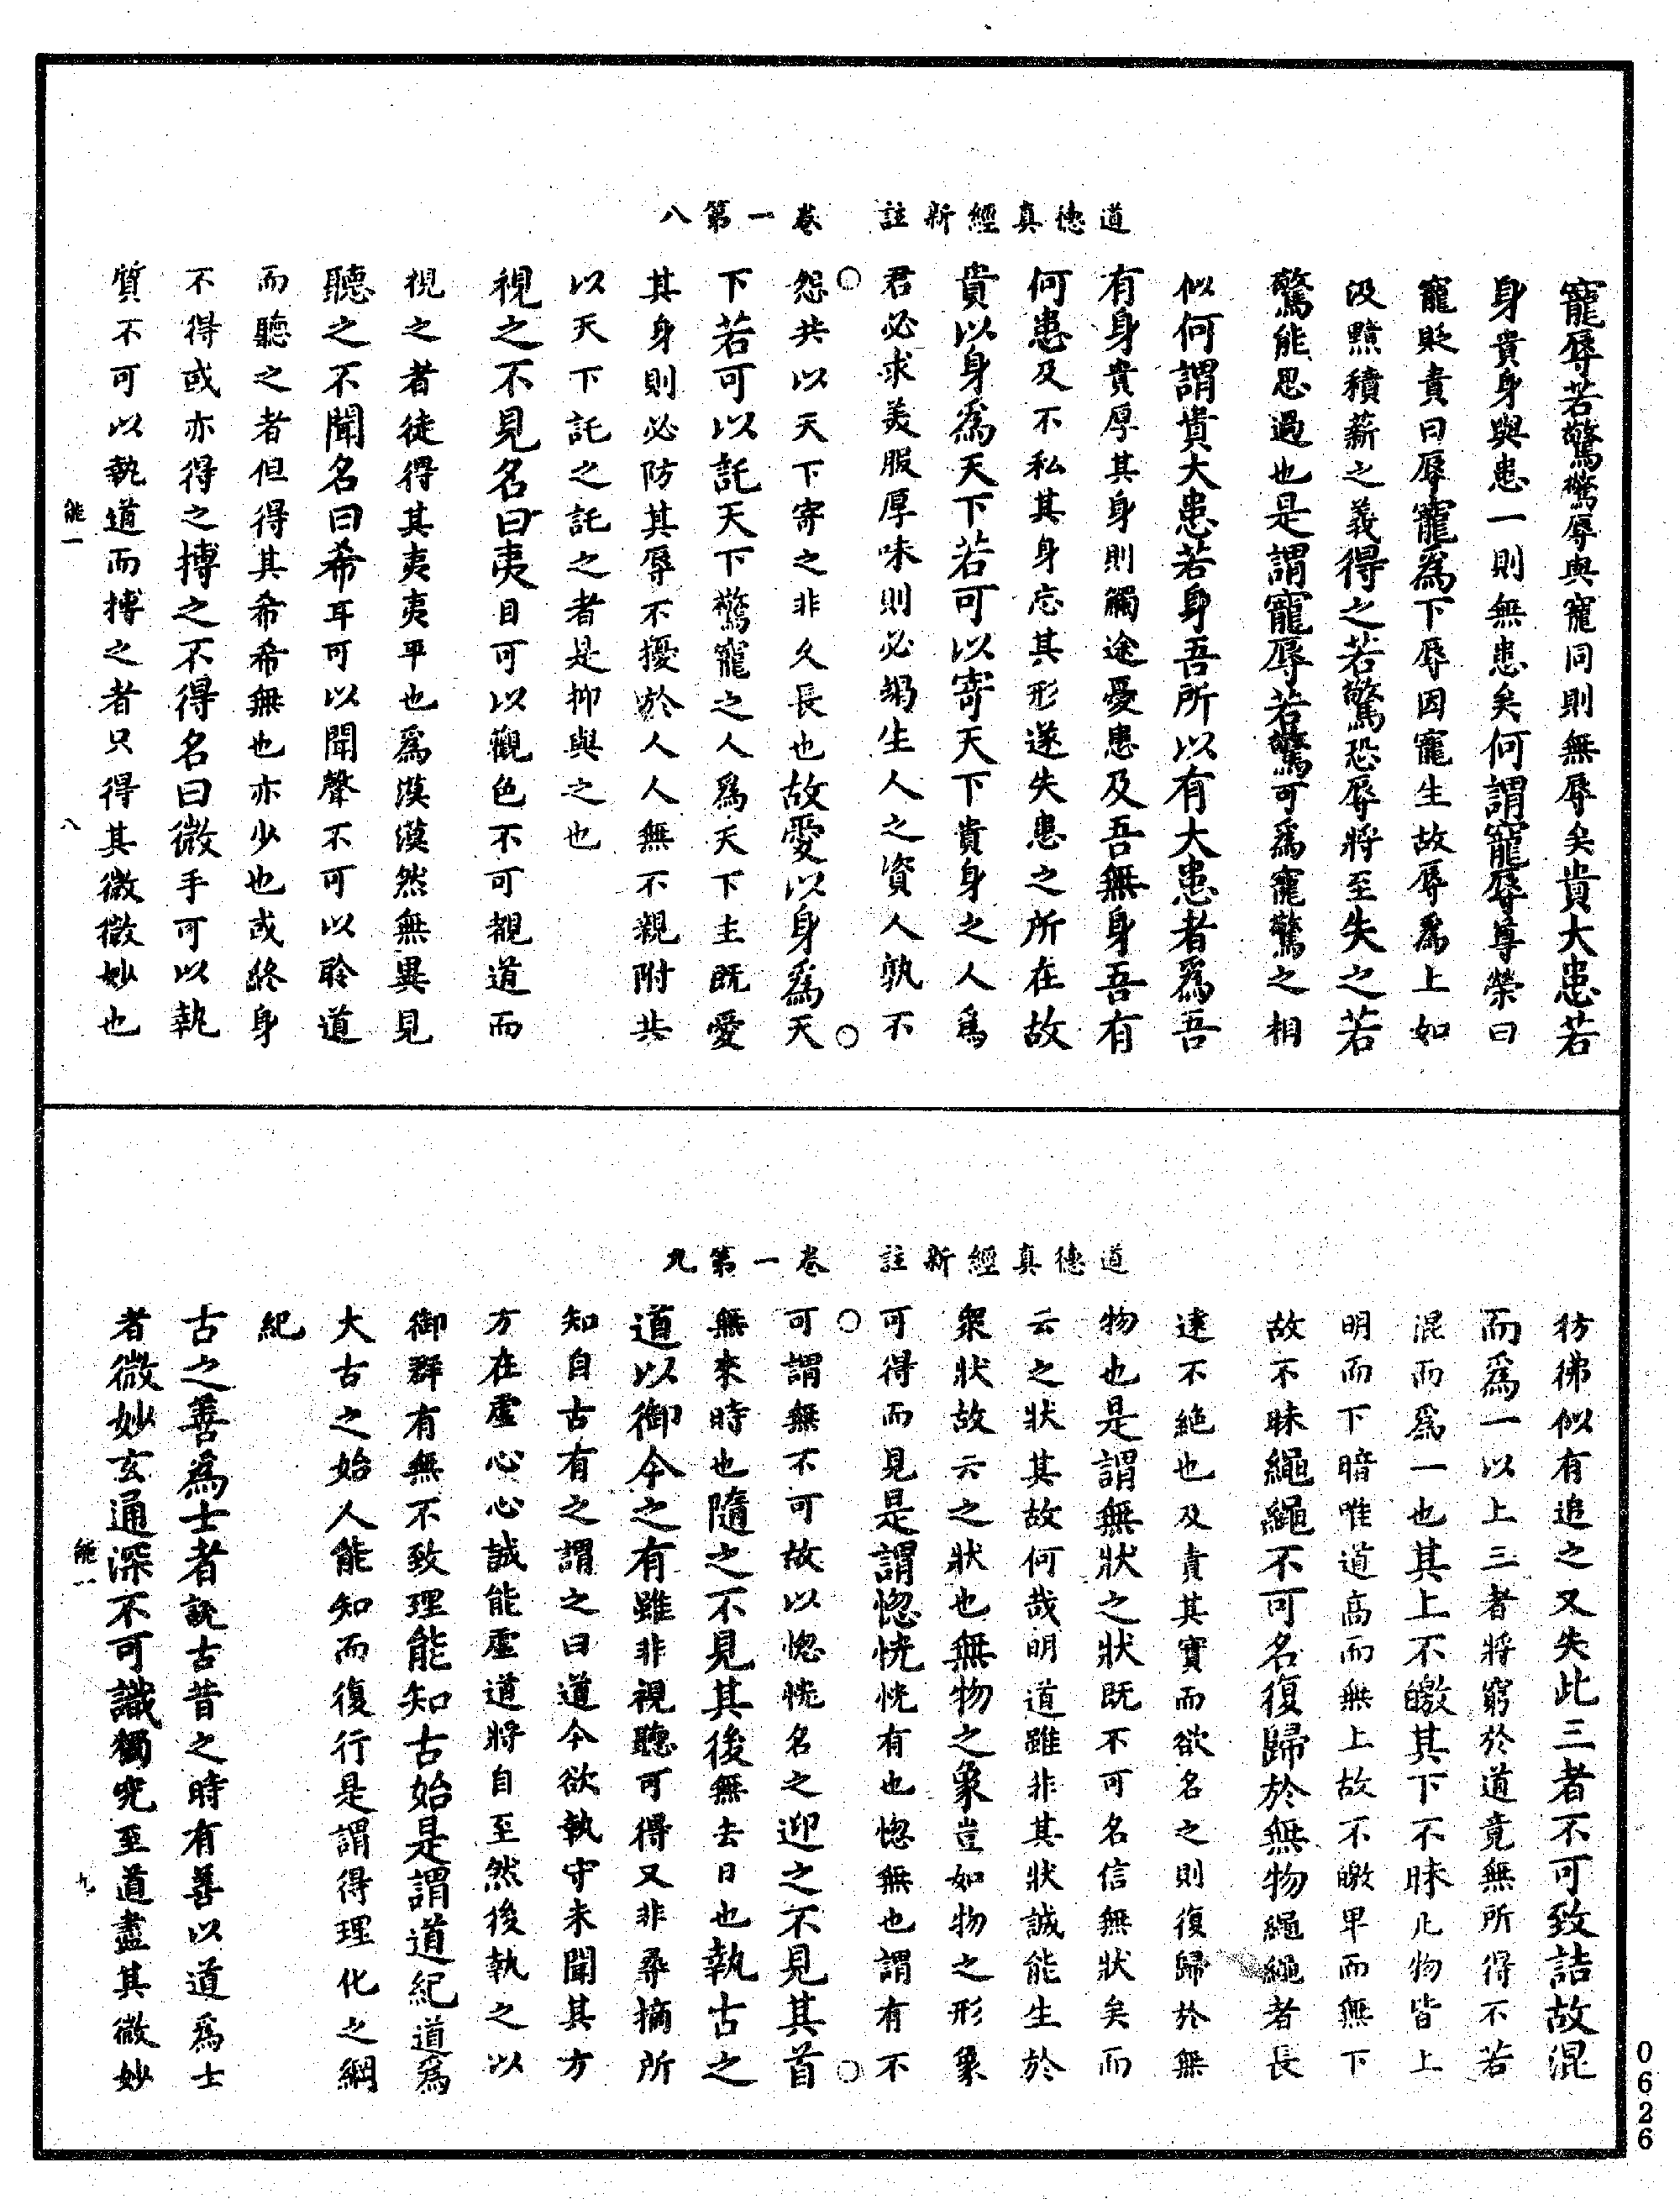 道德真經新註　卷一第八
寵辱若驚驚辱與寵同則無辱矣貴大患若
身貴身與患一則無患矣何謂寵辱尊榮曰
寵貶責曰辱寵爲下辱因寵生故辱爲上如
汲黯積薪之義得之若驚恐辱將至失之若
驚能思過也是謂寵辱若驚可爲寵驚之相
似何謂貴大患若身吾所以有大患者爲吾
有身貴厚其身則觸途憂患及吾無身吾有
何患及不私其身忘其形遂失患之所在故
貴以身爲天下若可以寄天下貴身之人爲
君必求美服厚味則必竭生人之資人孰不
怨共以天下寄之非久長也故愛以身爲天
下若可以託天下驚寵之人爲天下主既愛
其身則必防其辱不擾於人人無不親附共
以天下託之託之者是抑與之也
視之不見名曰夷目可以觀色不可覩道而
視之者徒得其夷夷平也爲漠漠然無異見
聽之不聞名曰希耳可以聞聲不可以聆道
而聽之者但得其希希無也亦少也或終身
不得或亦得之搏之不得名曰微手可以執
質不可以執道而搏之者只得其微微妙也
能一　八
道德真經新註　卷一第九
彷彿似有追之又失此三者不可致詰故混
而爲一以上三者將窮於道竟無所得不若
混而爲一也其上不皦其下不昧凡物皆上
明而下暗唯道高而無上故不皦卑而無下
故不昧繩繩不可名復歸於無物繩繩者長
遠不絶也及責其實而欲名之則復歸於無
物也是謂無狀之狀既不可名信無狀矣而
云之狀其故何哉明道雖非其狀誠能生於
衆狀故云之狀也無物之象豈如物之形象
可得而見是謂惚恍恍有也惚無也謂有不
可謂無不可故以惚恍名之迎之不見其首
無來時也隨之不見其後無去日也執古之
道以御今之有雖非視聽可得又非尋摘所
知自古有之謂之曰道今欲執守未聞其方
方在虛心心誠能虛道將自至然後執之以
御群有無不致理能知古始是謂道紀道爲
大古之始人能知而復行是謂得理化之綱
紀
古之善爲士者說古昔之時有善以道爲士
者微妙玄通深不可識獨究至道盡其微妙
能一　九
0626